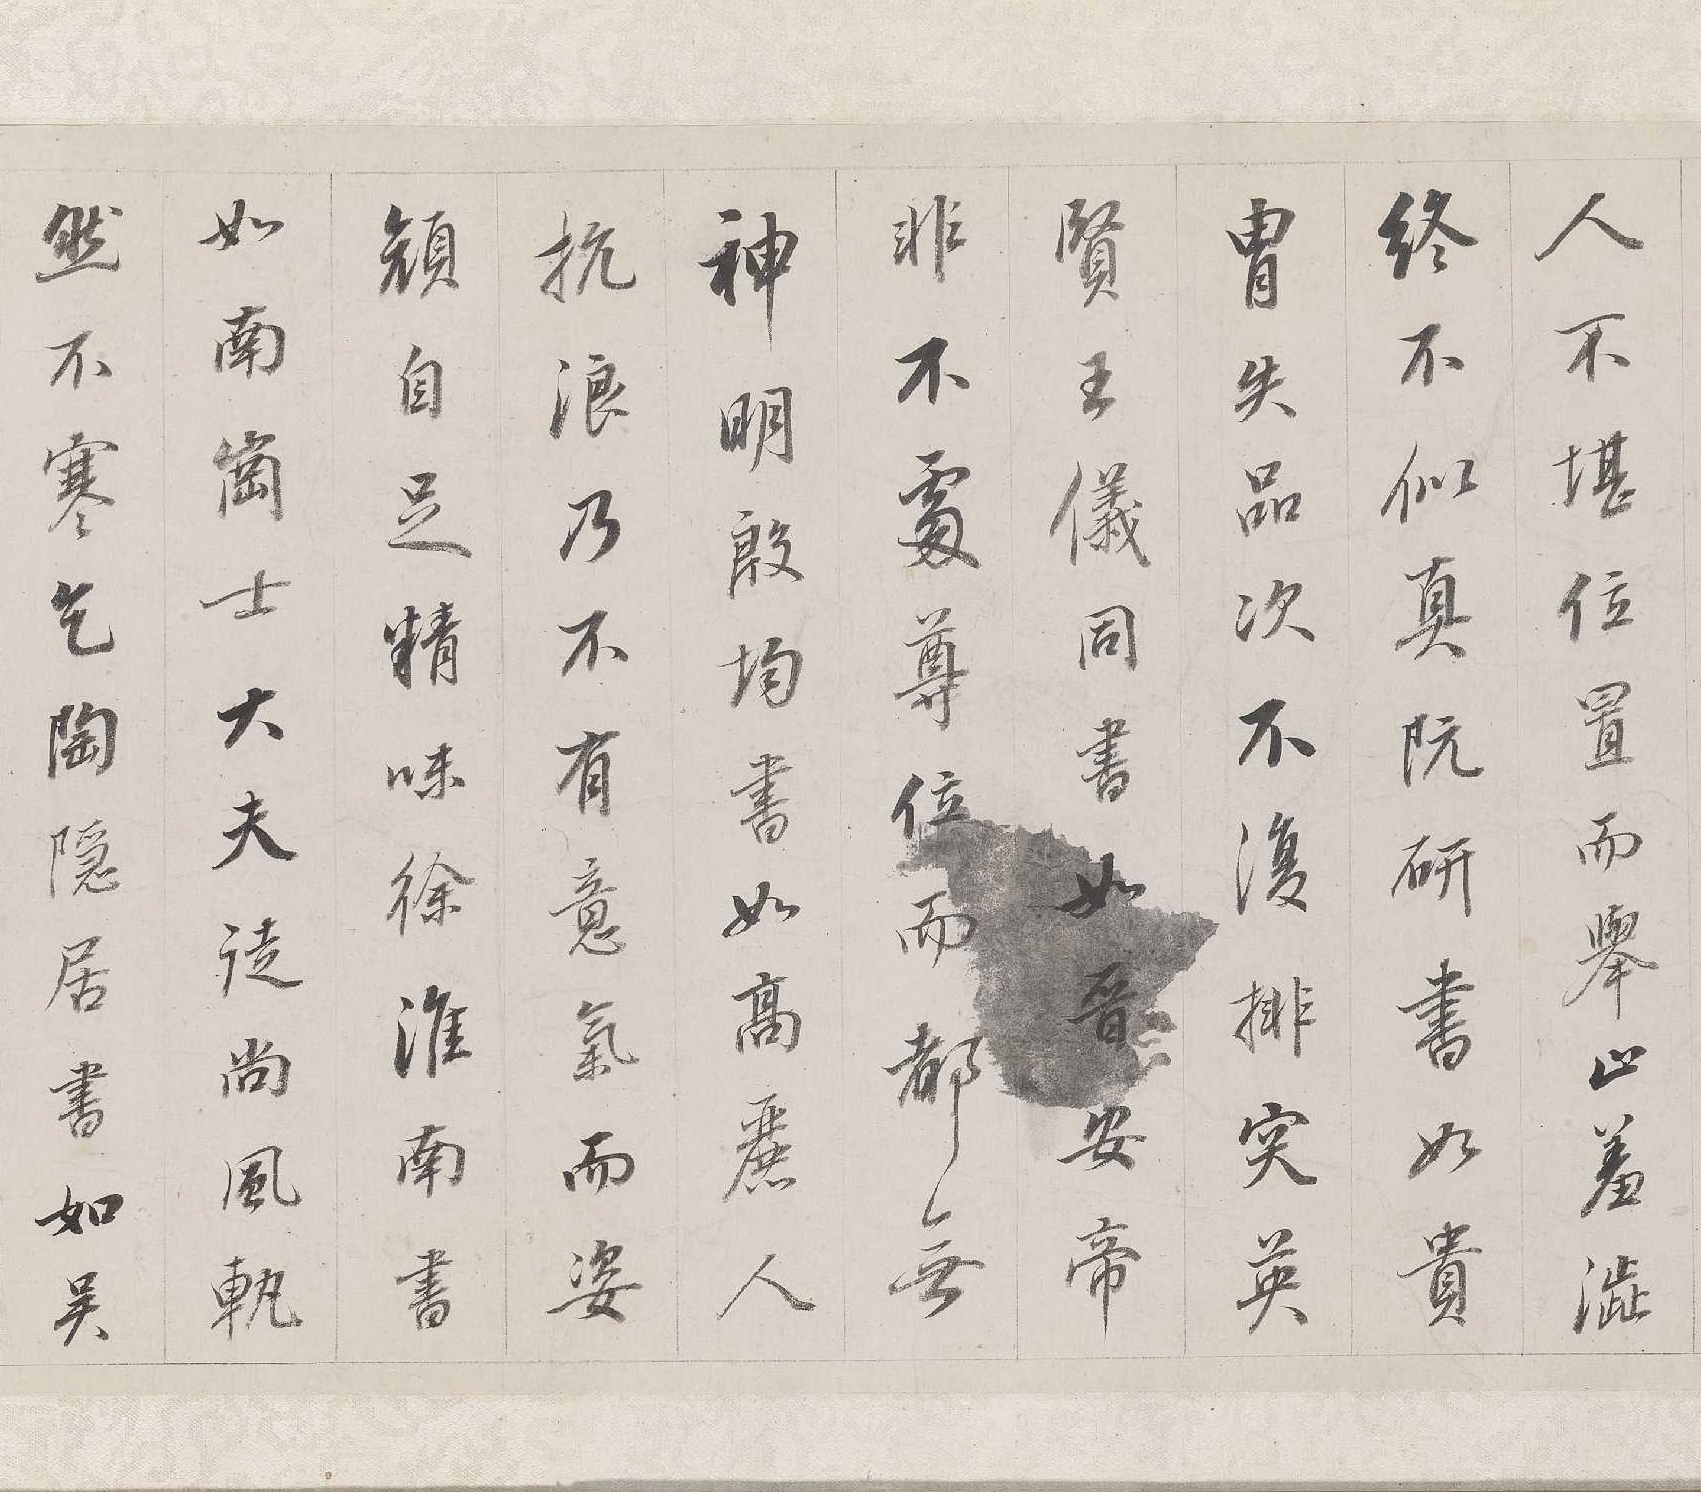 人不堪位置而舉止羞澁
終不似真阮研書如貴
胄失品次不復排突英
賢王儀同書如晉安帝
非不處尊位而都無
神明殷均書如高麗人
抗浪乃不有意氣而姿
顏自足精味徐淮南書
如南崗士大夫徒尚風軌
然不寒乞陶隱居書如吴